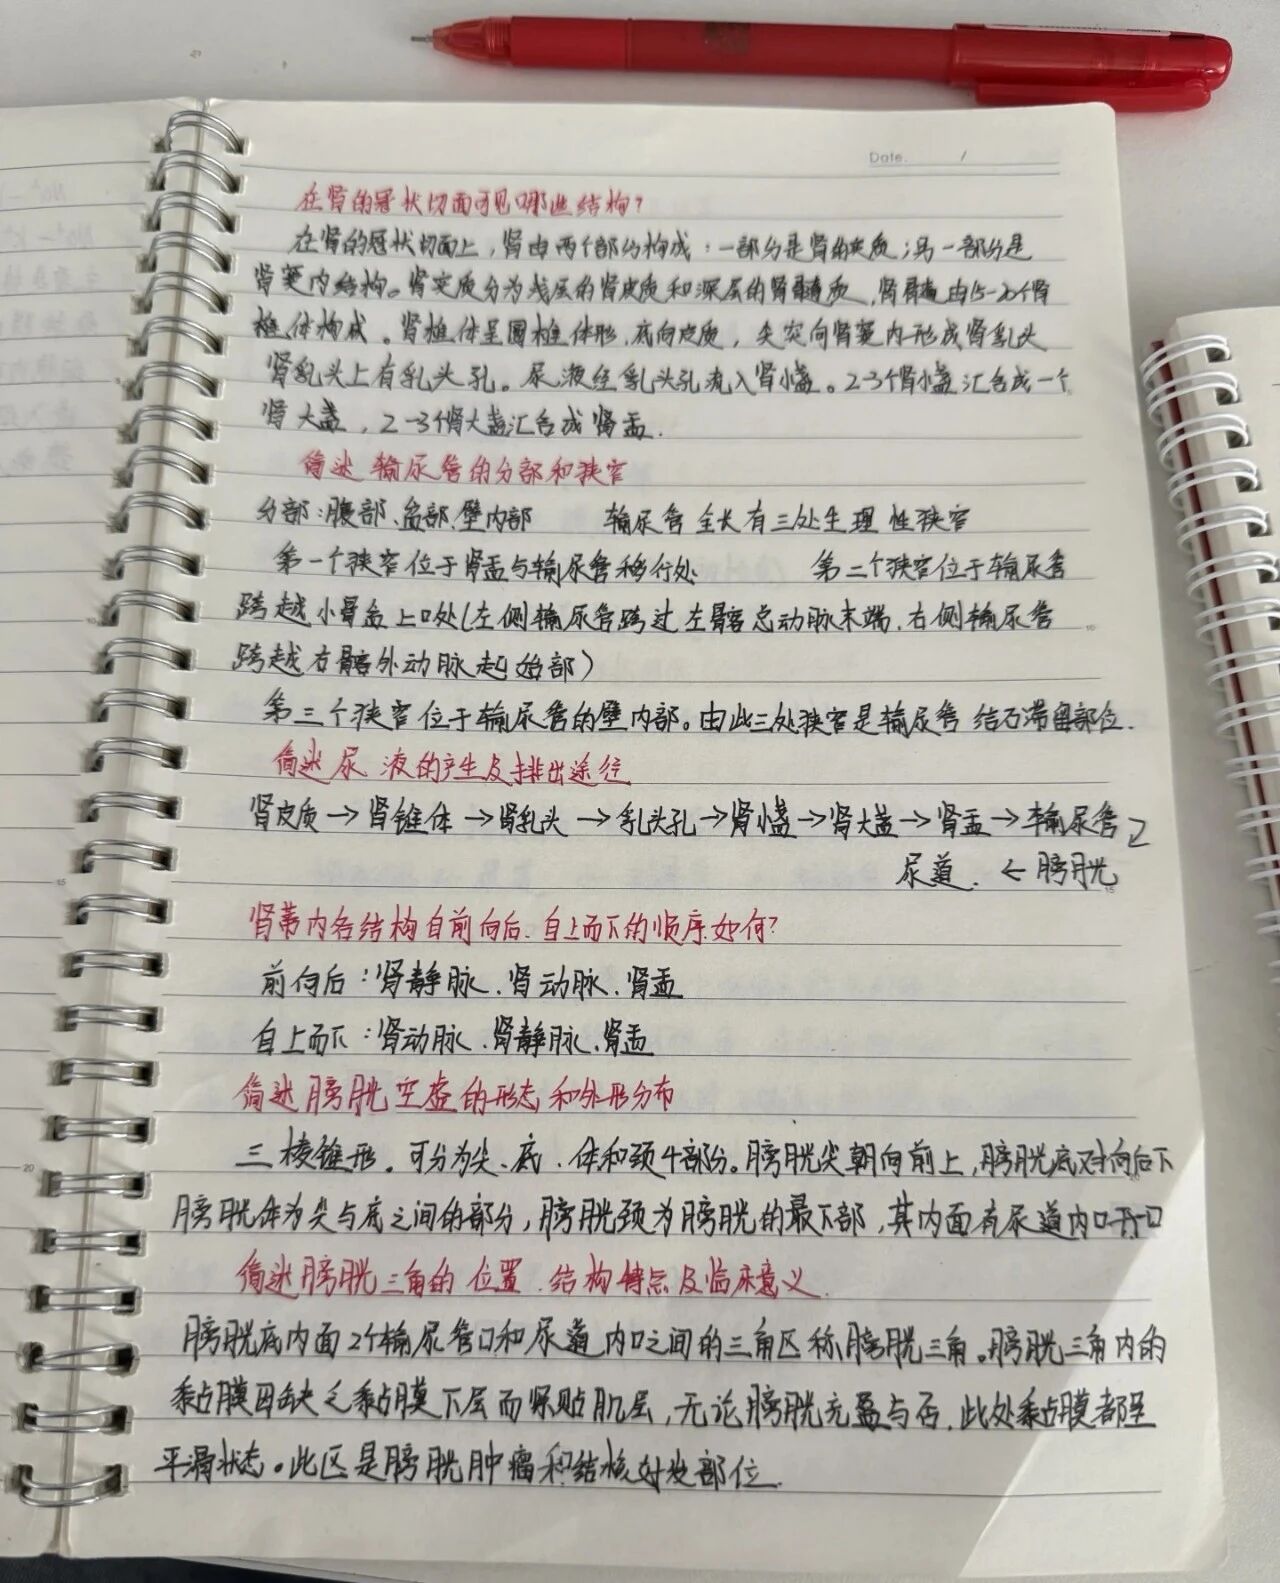 Date. /
在肾的冠状切面可见哪些结构?
在肾的冠状切面上，肾由两个部分构成：一部分是肾的实质；另一部分是
肾窦内结构。肾实质分为浅层的肾皮质和深层的肾髓质，肾髓由15-20个肾
椎体构成。肾椎体呈圆椎体形，底向皮质，尖突向肾窦内形成肾乳头
肾乳头上有乳头孔。尿液经乳头孔流入肾小盏。2-3个肾小盏汇合成一个
肾大盏，2-3个肾大盏汇合成肾盂.
简述输尿管的分部和狭窄
分部：腹部、盆部、壁内部 输尿管全长有三处生理性狭窄
第一个狭窄位于肾盂与输尿管移行处 第二个狭窄位于输尿管
跨越小骨盆上口处(左侧输尿管跨过左髂总动脉末端.右侧输尿管
跨越右髂外动脉起始部)
第三个狭窄位于输尿管的壁内部。由此三处狭窄是输尿管结石滞留部位.
简述尿液的产生及排出途径
肾皮质→肾锥体→肾乳头→乳头孔→肾小盏→肾大盏→肾盂→输尿管
尿道.←膀胱
肾蒂内各结构自前向后.自上而下的顺序如何?
前向后：肾静脉.肾动脉.肾盂
自上而下：肾动脉.肾静脉.肾盂
简述膀胱空虚的形态和外形分布
三棱锥形。可分为尖、底.体和颈4部分。膀胱尖朝向前上，膀胱底对向后下
膀胱体为尖与底之间的部分，膀胱颈为膀胱的最下部，其内面有尿道内口开口
简述膀胱三角的位置.结构特点及临床意义.
膀胱底内面2个输尿管口和尿道内口之间的三角区称膀胱三角。膀胱三角内的
黏膜因缺乏黏膜下层而紧贴肌层，无论膀胱充盈与否.此处黏膜都呈
平滑状态。此区是膀胱肿瘤和结核好发部位.